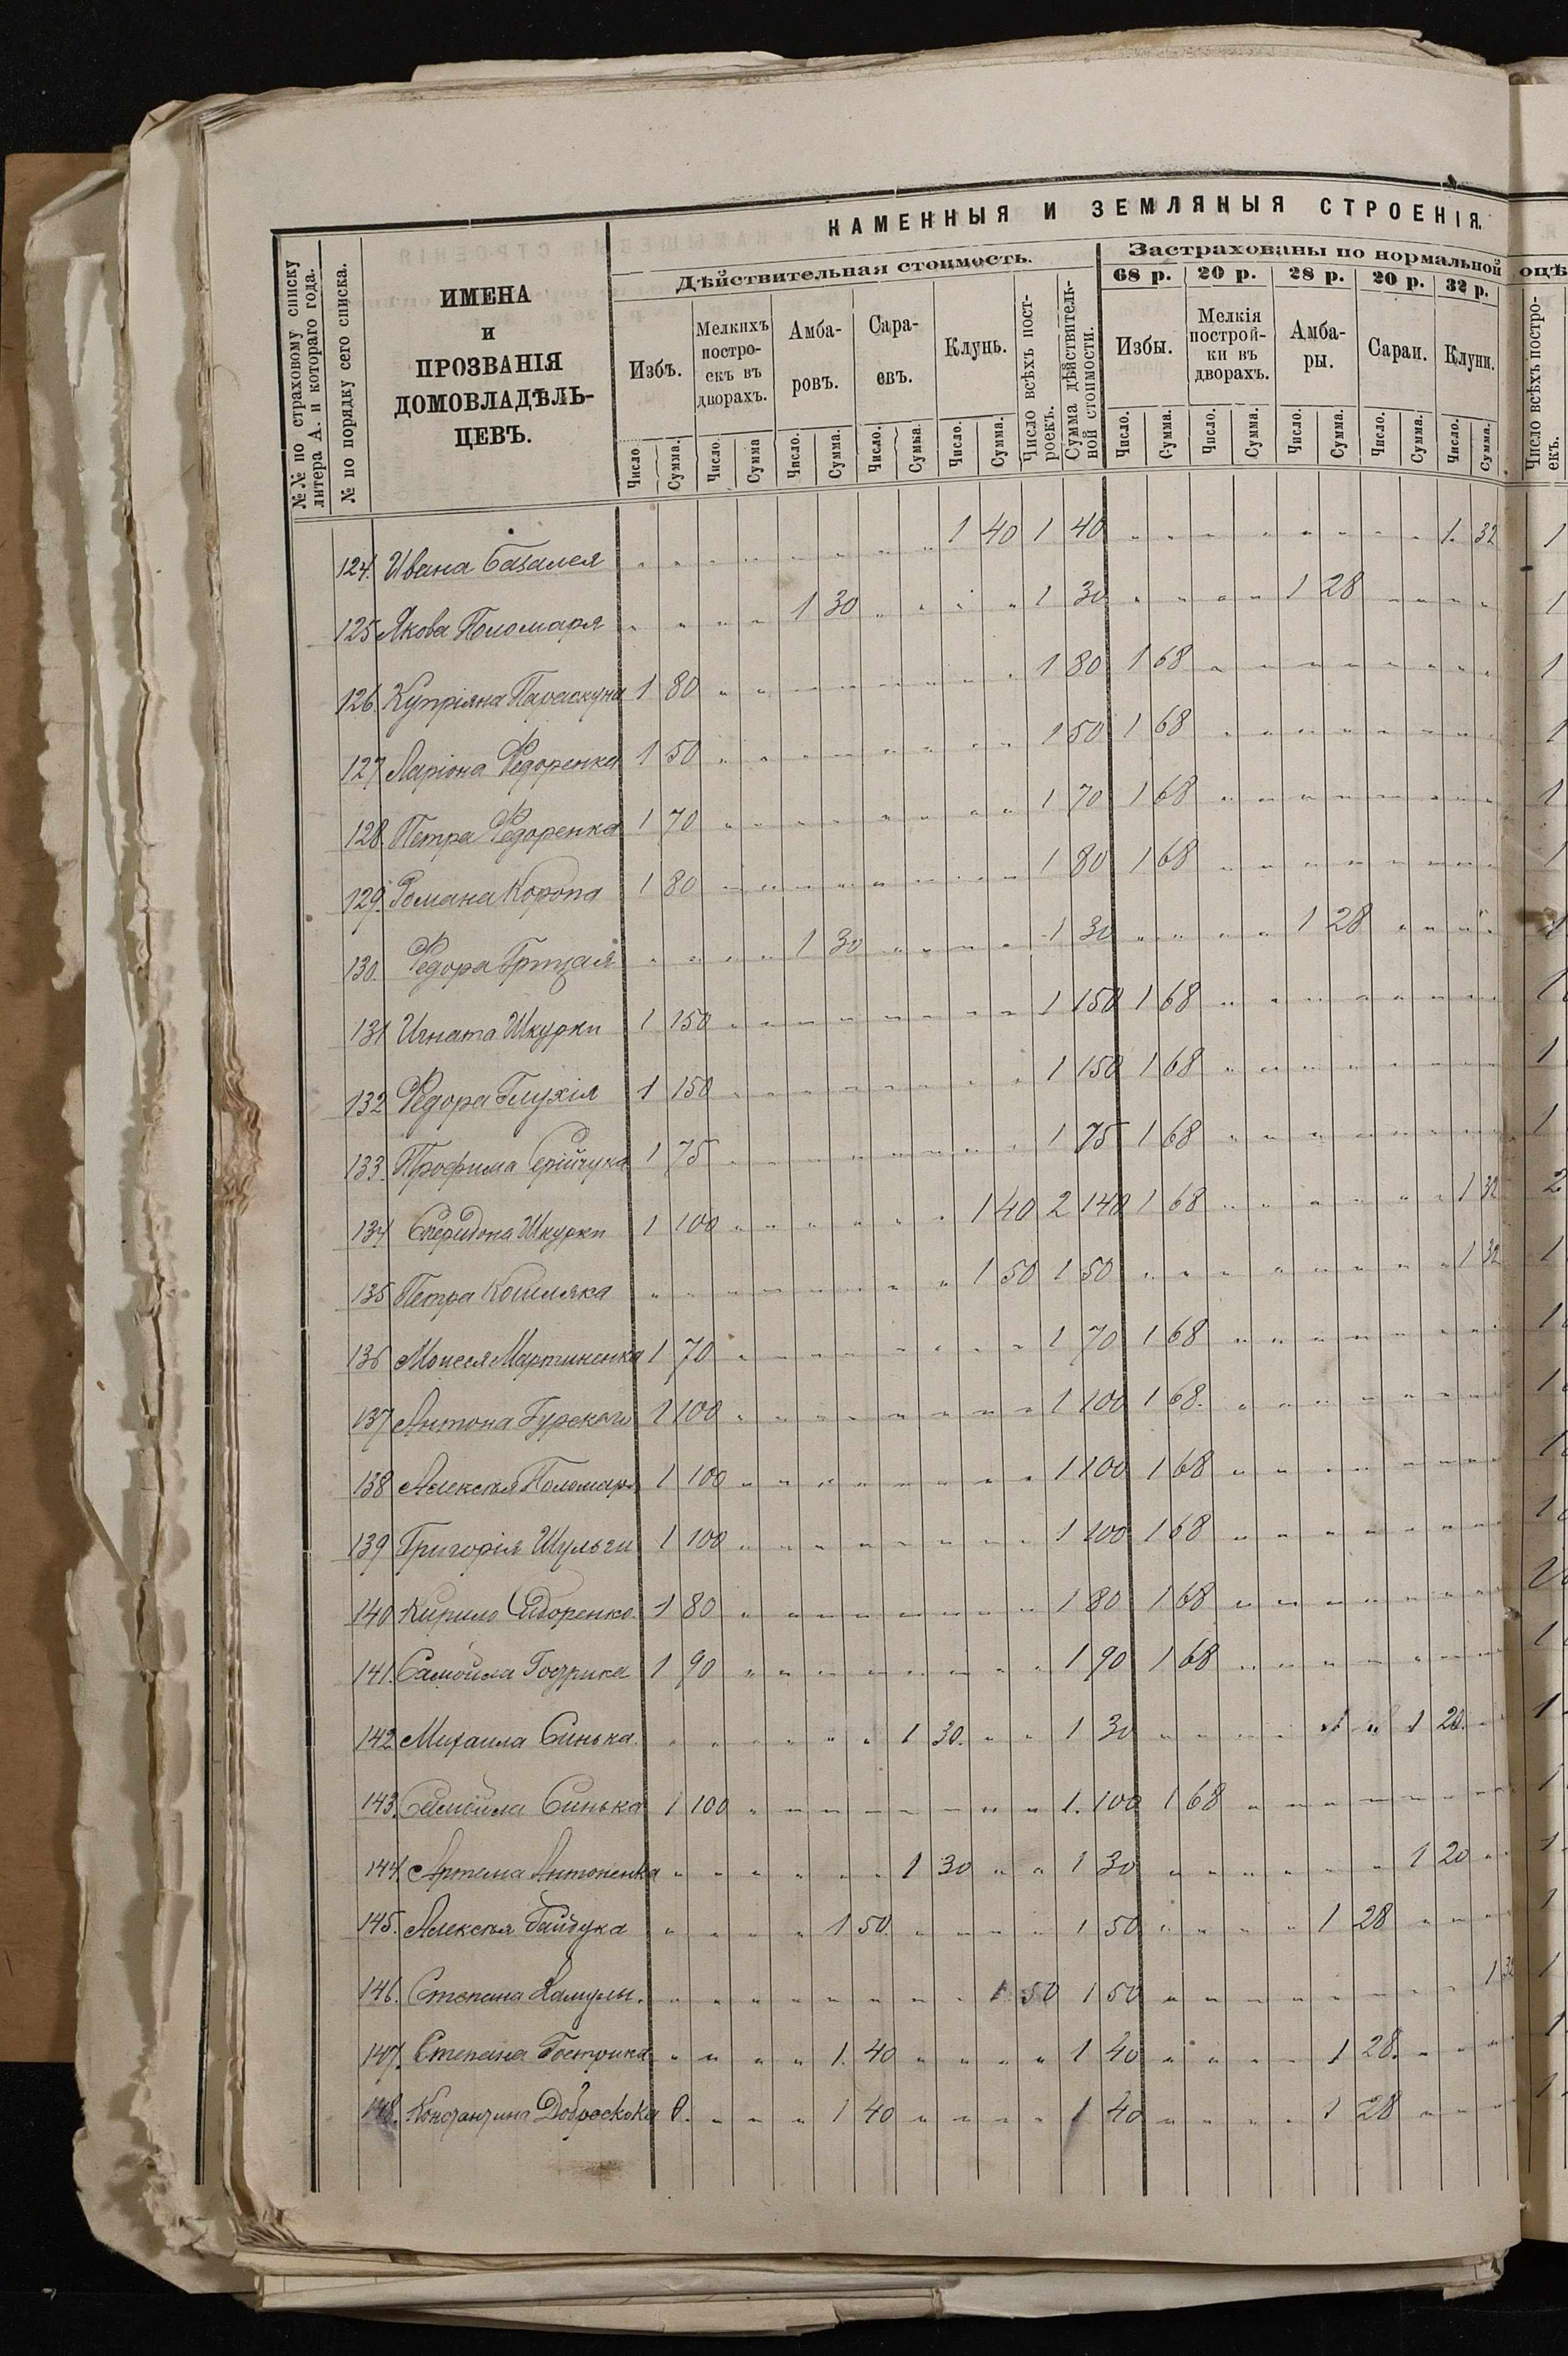 КАМЕННЫЯ И ЗЕМЛЯНЫЯ СТРОЕНІЯ.
№№ по страховому списку литера А. и котораго года.
№ по порядку сего списка.
ИМЕНА
и
ПРОЗВАНІЯ
ДОМОВЛАДѢЛЬ-
ЦЕВЪ.
Дѣйствительная стоимость.
Застрахованы по нормальной оцѣ
68 р. 20 р. 28 р. 20 р. 32 р.
Избъ.
Мелкихъ построекъ въ дворахъ.
Амба-ровъ.
Сара-евъ.
Клунь.
Число всѣхъ построекъ.
Сумма дѣйствительной стоимости.
Избы.
Мелкія постройки въ дворахъ.
Амба-ры.
Сараи.
Клуни.
Число всѣхъ построекъ.
Число. Сумма. Число. Сумма Число. Сумма. Число. Сумма. Число. Сумма. Число. Сумма. Число. Сумма. Число. Сумма. Число. Сумма. Число. Сумма.
124. Ивана Базалея 1 40 1 40 1. 32 1
125 Якова Поломаря 1 30 1 30 1 28 1
126. Купріяна Параскуна 1 80 1 80 1 68 1
127 Ларіона Федоренка 1 50 1 50 1 68 1
128. Петра Федоренка 1 70 1 70 1 68 1
129. Романа Коропа 1 80 1 80 1 68 1
130. Федора Грицая 1 30 1 30 1 28 1
131 Игната Шкурки 1 150 1 150 1 68 1
132 Федора Глухія 1 150 1 150 1 68 1
133. Трофима 1 75 1 75 1 68 1
134 Спиридона Шкурки 1 100 1 40 2 140 1 68 1 32 2
135 Петра Кошляка 1 50 1 50 1 32 1
136 Моисея Мартиненка 1 70 1 70 1 68 1
137 Антона Гурскаго 1 100 1 100 1 68. 1
138 Алексѣя Поломаря 1 100 1 100 1 68 1
139 Григорія Шульги 1 100 1 100 1 68 1
140 Кирило Сидоренко. 1 80 1 80 1 68
141. Самойла 1 90 1 90 1 68 1
142 Михаила Синька. 1 30. 1 30 1 20. 1
143. Самойла Синька 1 100 1. 100 1 68 1
144. Артема Антоненка 1 30 1 30 1 20 1
145. Алексѣя Гайдука 1 50. 1 50 1 28 1
146. Степана 1 50 1 50 1 32 1
147. Степана 1. 40 1 40 1 28. 1
148. Константина Доброскока 1 40 1 40 1 28 1